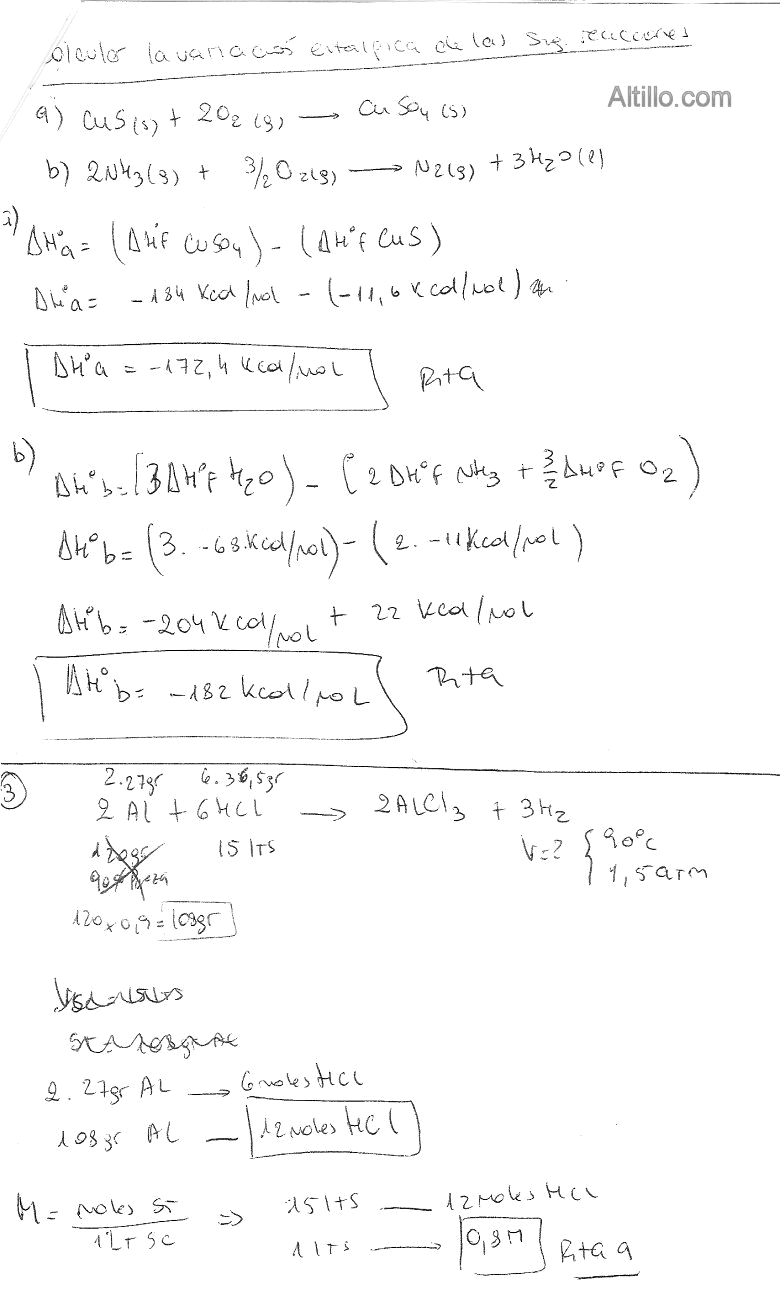 Calcular la variación entalpica de las sig. reacciones
Altillo.com
a) CuS(s) + 2O2(g) → CuSO4(s)
b) 2NH3(g) + 3/2O2(g) → N2(g) + 3H2O(l)
a)
ΔH°a = (ΔH°F CuSO4) - (ΔH°F CuS)
ΔH°a = -184 Kcal/mol - (-11,6 Kcal/mol)
ΔH°a = -172,4 Kcal/mol Rta
b)
ΔH°b = (3ΔH°F H2O) - (2ΔH°F NH3 + 3/2 ΔH°F O2)
ΔH°b = (3. -68Kcal/mol) - (2. -11Kcal/mol)
ΔH°b = -204 Kcal/mol + 22 Kcal/mol
ΔH°b = -182 Kcal/mol Rta
3
2.27gr 6.36,5gr
2Al + 6HCl → 2AlCl3 + 3H2
120gr 15 lts V=? { 90°c
1,5 atm
120x0,9=108gr
2.27gr AL → 6moles HCl
108gr AL — 12 moles HCl
M = moles ST / 1LT SC => 15 lts — 12 moles HCl
1 lts → 0,8M Rta a